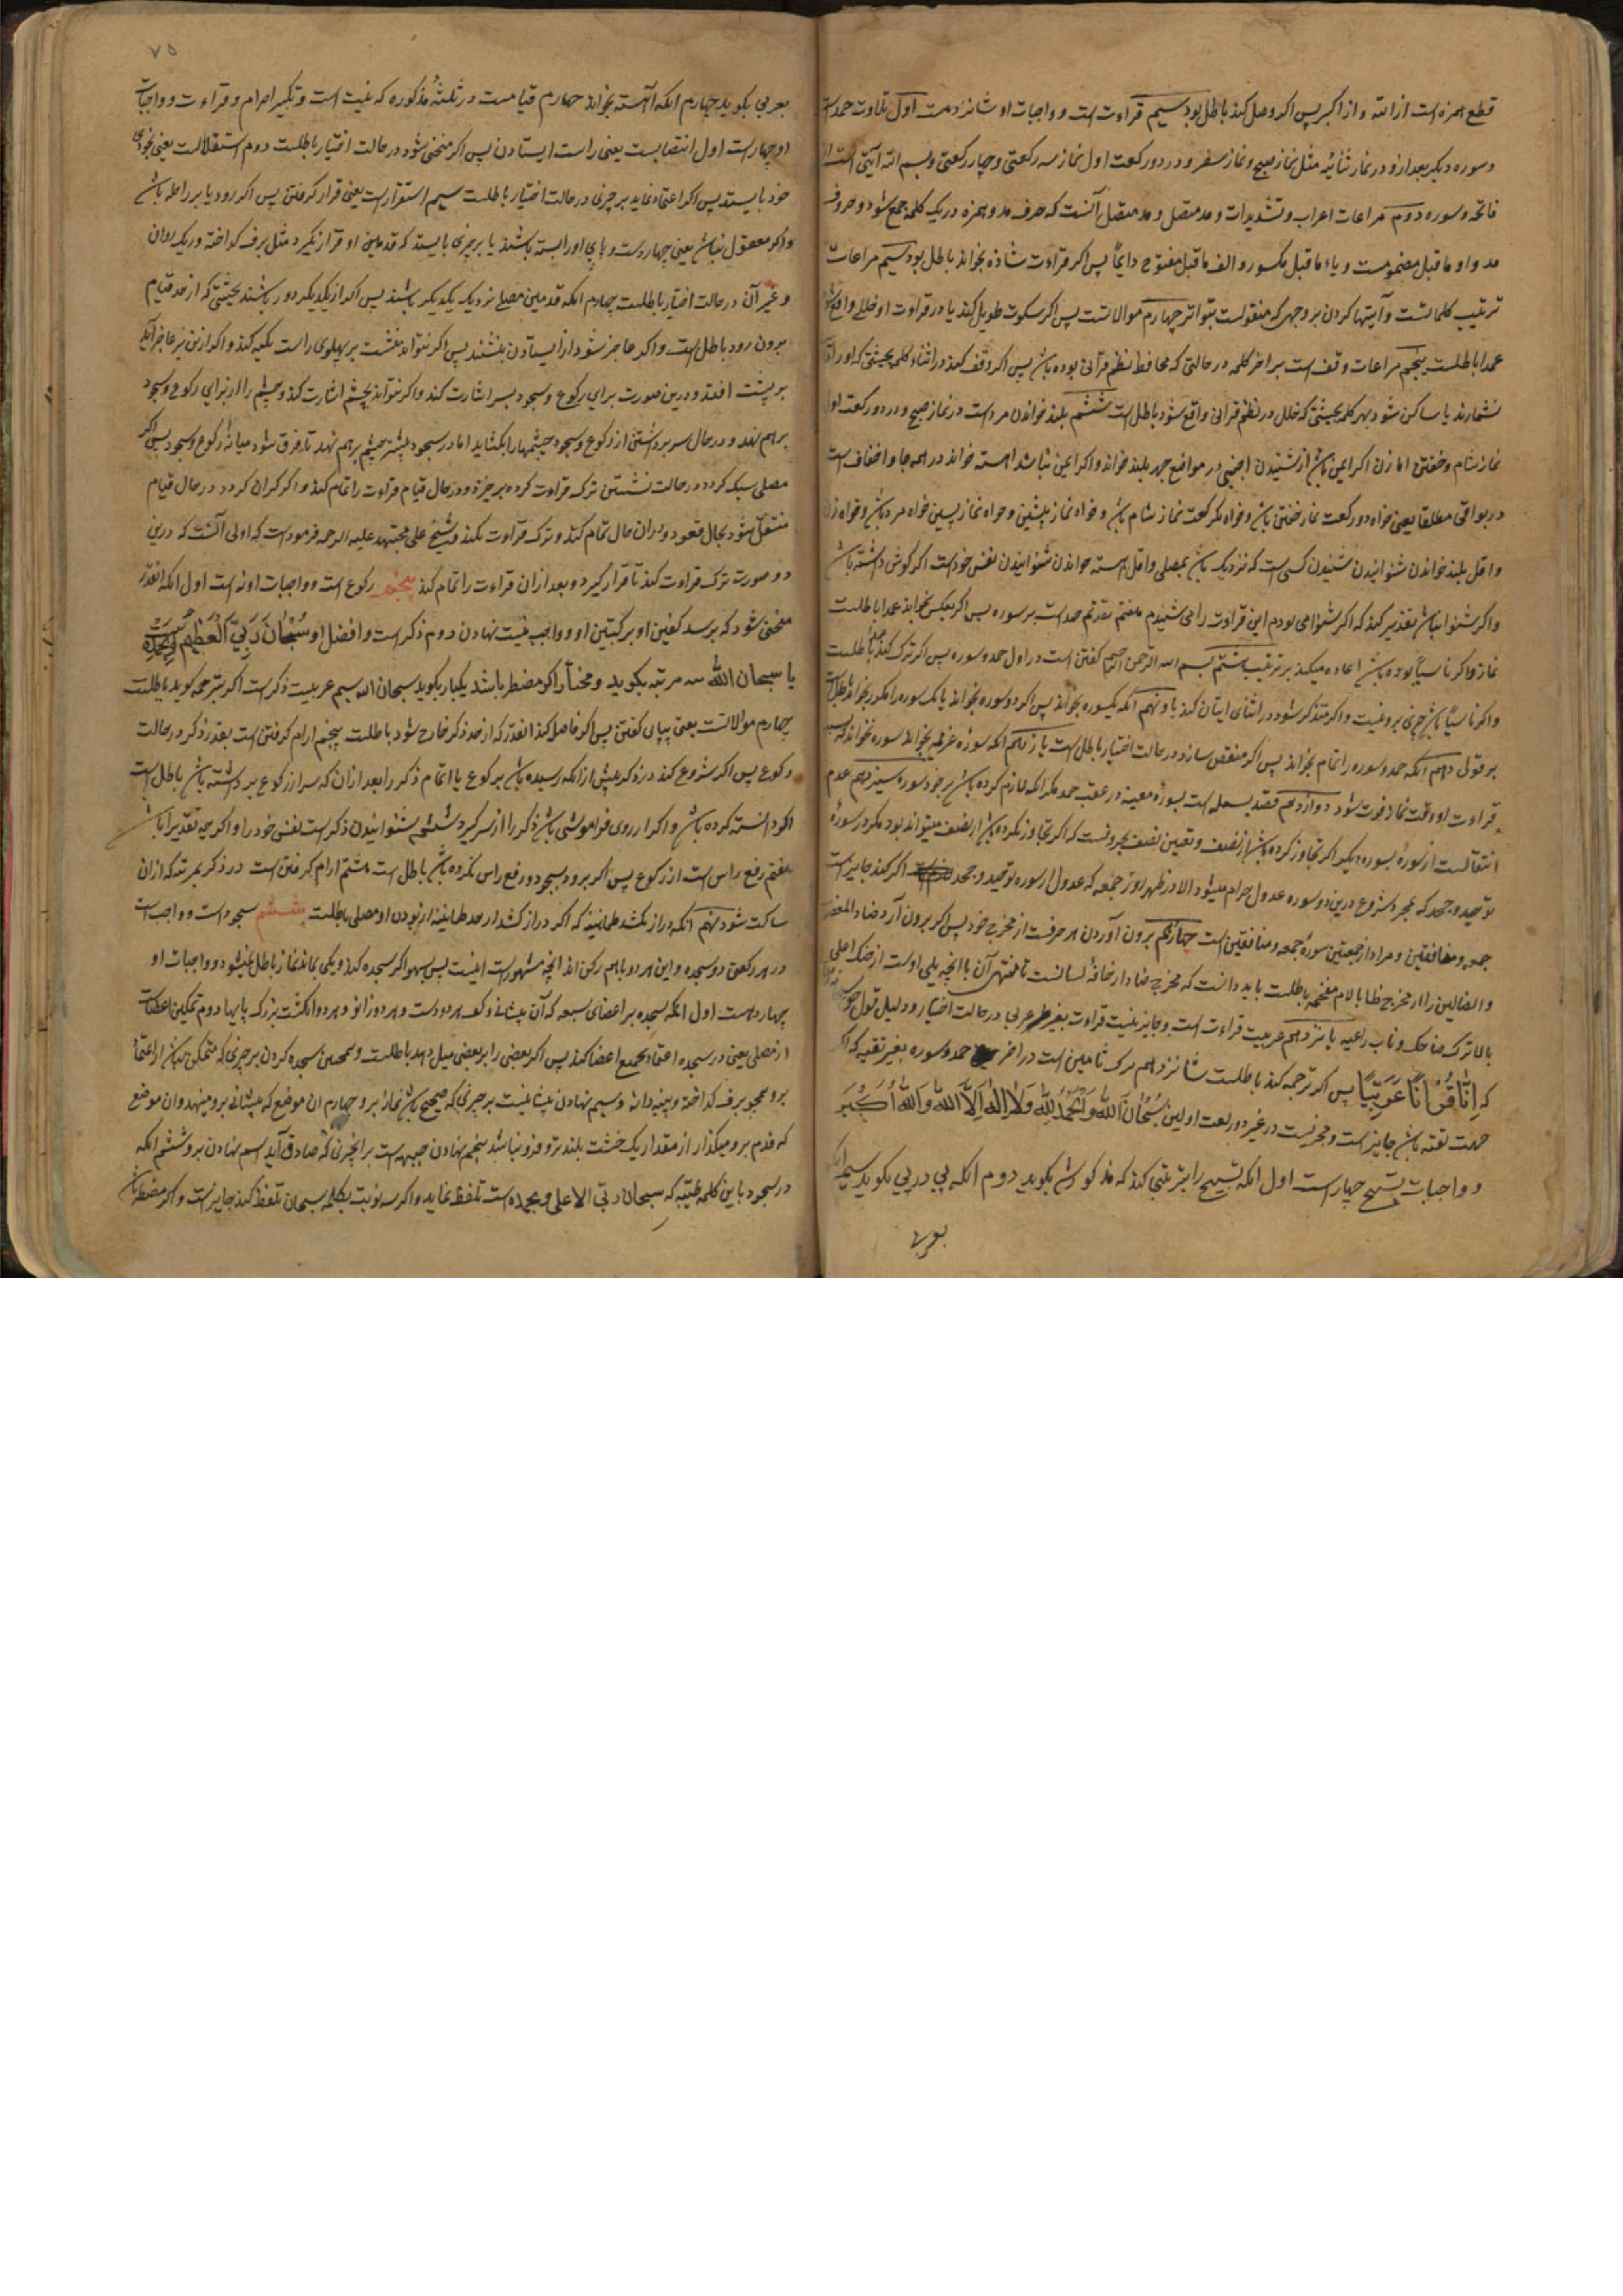 قطع همزه است از الله و از اکبر پس اکر وصل کند باطل بود سیم قراءت است و واجبات او شانزدهست اول تلاوت حمدست
و سوره دیکر بعد ازو در نماز ثنائیه مثل نماز صبح و نماز سفر و در دو رکعت اول نماز سه رکعتی و چهار رکعتی و بسم الله آیتی است از
فاتحه و سوره دوم مراعات اعراب و تشدیدات و مد متصل و مد متصل آنست که حرف مد و همزه در یک کلمه جمع شود و حروف
مد واو ماقبل مضمومست و یاء ماقبل مکسور و الف ماقبل مفتوح دایماً پس اکر قراءت شاذه بخواند باطل بود سیم مراعات
ترتیب کلماتست و آیتها کردن بر وجهی که منقولست بتواتر چهارم موالاتست پس اکر سکوت طویل کند یا در قراءت او خللی واقع شود
عمدا باطلست پنجم مراعات وقفست بر اخر کلمه در حالتی که محافظ نظم قرآنی بوده باشد پس اکر وقف کند در اثناء کلمه بحیثیتی که او را
نشمارند یا ساکن شود بهر کلمه بحیثیتی که خلل در نظم قرانی واقع شود باطل است ششم بلند خواندن مردست در نماز صبح و در دو رکعت اول
نماز شام و خفتن اما زن اکر ایمن باشد از شنیدن اجنبی در مواضع جهر بلند خواند و اکر ایمن نباشد اهسته خواند در همه جا و اخفاف است
در بواقی مطلقا یعنی خواه دو رکعت نماز خفتن باشد و خواه یک رکعت نماز شام باشد و خواه نماز پیشین و خواه نماز پسین خواه مرد باشد و خواه زن
و اقل بلند خواندن شنوانیدن کسی است که نزدیک باشد بمصلی و اقل اهسته خواندن شنوانیدن نفس خودست اکر کوش داشته باشد
و اکر شنوا نباشد تقدیر کند که اکر شنوا می بودم این قراءت را می شنیدم هفتم تقدیم حمدست بر سوره پس اکر بعکس خواند عمدا باطلست
نماز و اکر ناسیاً بوده باشد اعاده میکند بر ترتیب هشتم بسم الله الرحمن الرحیم کفتن است در اول حمد و سوره پس اکر ترک کند عمدا باطلست
و اکر ناسیا باشد چیزی برو نیست و اکر متذکر شود در اثنای ایتان کند باو نهم انکه یکسوره بخواند پس اکر دو سوره بخواند یا یک سوره را مکرر بخواند باطل است
بر قولی دهم انکه حمد و سوره را تمام بخواند پس اکر منقص سازد در حالت اختیار باطل است یازدهم انکه سوره عزیمه نخواند سوره نخواند که بسبب
قراءت او وقت نماز فوت شود دوازدهم قصد بسمله است بسوره معینه در عقب حمد مکر انکه لازم کرده باشد بر خود سوره سیزدهم عدم
انتقالست از سوره بسوره دیکر اکر تجاوز کرده باشد از نصف و تعیین نصف بحروفست که اکر تجاوز نکرده باشد از نصف میتواند بود مکر در سورهٔ
توحید و جحد که بمجرد شروع درین دو سوره عدول حرام میشود الا در ظهر روز جمعه که عدول از سوره توحید و جحد اکر کند جایزست
جمعه و منافقین و مراد از جمعتین سورهٔ جمعه و منافقین است چهاردهم برون آوردن هر حرفست از مخرج خود پس اکر برون آرد ضاد المغضوب
و الضالین را از مخرج ظا یا لام مفخمه باطلست باید دانست که مخرج ضاد از حافهٔ لسانست تا منتهی آن با انچه یلی اوست از حنک اعلی
بالا ترک ضاحک و ناب رباعیه پانزدهم عربیت قراءت است و جایز نیست قراءت بغیر عربی در حالت اختیار و دلیل قول
که اِنّا قُرْآنًا عَرَبِیًّا پس اکر ترجمه کند باطلست شانزدهم ترک تامین است در اخر حمد و سوره بغیر تقیه که اکر
جهت تقیه باشد جایزست و مجزیست در غیر دو رکعت اولیین سُبْحَانَ اللهِ وَالْحَمْدُ لِلهِ وَلَا اِلٰهَ اِلَّا اللهُ وَاللهُ اَکْبَر
و واجبات تسبیح چهارست اول انکه تسبیح را بترتیبی کند که مذکور شد بکوید دوم انکه پی در پی بکوید سیم انکه
بعربی
۷۵
بعربی بکوید چهارم انکه آهسته بخواند چهارم قیامست در ثلثهٔ مذکوره که نیت است و تکبیر احرام و قراءت و واجبات
او چهارست اول انتصابست یعنی راست ایستادن پس اکر منحنی شود در حالت اختیار باطلست دوم استقلالست یعنی بخودی
خود بایستد پس اکر اعتماد نماید بر چیزی در حالت اختیار باطلست سیم استقرارست یعنی قرار کرفتن پس اکر رود یا بر راحله باشد
و اکر معقول باشد یعنی چهار دست و پای او را بسته باشند یا بر چیزی بایستد که قدمین او قرار نکیرد مثل برف کداخته و ریک روان
و غیر آن در حالت اختیار باطلست چهارم انکه قدمین مصلی نزدیک یکدیکر باشند پس اکر از یکدیکر دور باشند بحیثیتی که از حد قیام
برون رود باطل است و اکر عاجز شود از ایستادن بنشیند پس اکر نتواند نشست بر پهلوی راست تکیه کند و اکر ازین نیز عاجز آید
بر پشت افتد و درین صورت برای رکوع و سجود بسر اشارت کند و اکر نتواند بچشم اشارت کند و چشم را از برای رکوع و سجود
بر هم نهد و در حال سر برداشتن از رکوع و سجود چشمها را بکشاید اما در سجود بیشتر چشم بر هم نهد تا فرق شود میانهٔ رکوع و سجود پس اکر
مصلی سبک کردد در حالت نشستن ترک قراءت کرده برخیزد و در حال قیام قراءت را تمام کند و اکر کران کردد در حال قیام
منتقل شود بحال قعود و در ان حال تمام کند و ترک قراءت نکند و شیخ علی مجتهد علیه الرحمه فرموده است که اولی آنست که درین
دو صورت ترک قراءت کند تا قرار کیرد و بعد از ان قراءت را تمام کند پنجم رکوع است و واجبات او نه است اول انکه انقدر
منحنی شود که برسد کفین او برکبتین او و واجب نیست نهادن دوم ذکرست و افضل او سُبْحَانَ رَبِّیَ الْعَظِیمِ وَبِحَمْدِهِ
یا سبحان الله سه مرتبه بکوید و مختاراً و اکر مضطر باشد یکبار بکوید سبحان الله سیم عربیت ذکرست اکر بترجمه کوید باطلست
چهارم موالاتست یعنی پیاپی کفتن پس اکر فاصل کند انقدر که از حد ذکر خارج شود باطلست پنجم ارام کرفتن است بقدر ذکر در حالت
رکوع پس اکر شروع کند در ذکر پیش از انکه رسیده باشد برکوع یا اتمام ذکر را بعد از ان که سر از رکوع برداشته باشد باطل است
اکر دانسته کرده باشد و اکر از روی فراموشی باشد ذکر را از سر کیرد ششم شنوانیدن ذکرست نفس خود را و اکر چه تقدیرا باشد
هفتم رفع راس است از رکوع پس اکر برود بسجود و رفع راس نکرده باشد باطل است هشتم ارام کرفتن است در ذکر بمرتبه که از ان
ساکت شود نهم انکه دراز نکشد طمانینه که اکر دراز کشد از حد طمانینه از بودن او مصلی باطلست ششم سجودست و واجبست
در هر رکعتی دو سجده و این هر دو باهم رکن اند انچه مشهورست اینست پس بسهو اکر سجده کند و یکی بماند نماز باطل نمیشود و واجبات او
چهاردهست اول انکه سجده بر اعضای سبعه که آن پیشانی و کف هر دو دست و هر دو زانو و هر دو انکشت بزرک پایها دوم تمکین اعضاست
از مصلی یعنی در سجده اعتماد بجمیع اعضا کند پس اکر بعضی را بر بعضی میل دهد باطلست و همچنین سجده کردن بر چیزی که متمکن نباشد از اعتماد
برو همچو برف کداخته و پنبه دانه و سیم نهادن پیشانیست بر چیزی که صحیح باشد نماز برو چهارم ان موضع که پیشانی برو مینهد و ان موضع
که قدم برو میکذارد از مقدار یک خشت بلندتر و فروتر نباشد پنجم نهادن جبهه است بر انچیزی که صادق آید اسم نهادن برو ششم انکه
در سجود باین کلمه طیبه که سبحان ربی الاعلی و بحمده است تلفظ نماید و اکر سه نوبت بکلمه سبحان تلفظ کند جایزست و اکر مضطر باشد